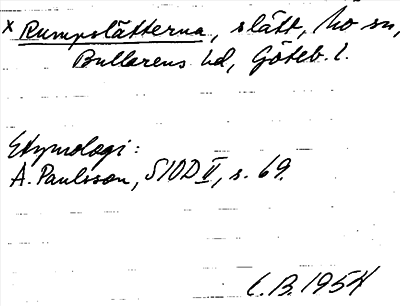 x Rumpslätterna, slått, Mo sn,
Bullarens hd, Göteb. l.
Etymologi:
A. Paulsson, SIOD II, s. 69.
C.B. 1954